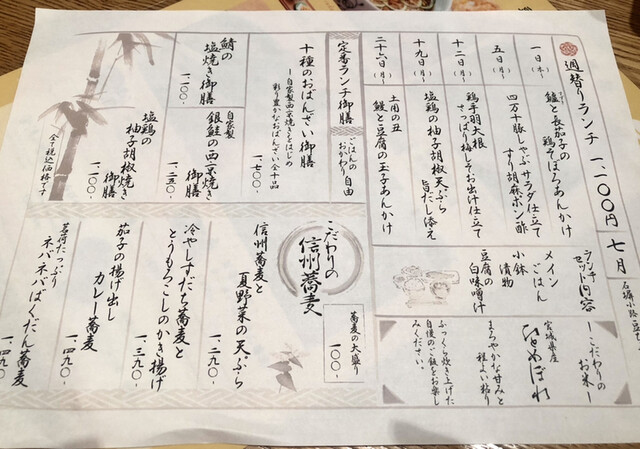 週替りランチ 一、一〇〇円 七月
一日(月)〜
鱸と長茄子の
鶏そぼろあんかけ
五日(月)〜
四万十豚しゃぶサラダ仕立て
すり胡麻ポン酢
十二日(月)〜
鶏手羽大根
さっぱり梅しそお出汁仕立て
十九日(月)〜
塩鶏の柚子胡椒天ぷら
旨だし添え
二十六日(月)〜
土用の丑
鰻と豆腐の玉子あんかけ
ランチ
セット内容
メイン
ごはん
小鉢
漬物
豆腐の
白味噌汁
―こだわりの
お米―
宮城県産
ひとめぼれ
まろやかな甘みと
程よい粘り
ふっくら炊き上げた
自慢のご飯をお楽し
みください。
定番ランチ御膳
ごはんの
おかわり
自由
十種のおばんざい御膳
―自家製西京焼きをはじめ
彩り豊かなおばんざい全十品
一、七〇〇-
鯖の
塩焼き御膳
一、二〇〇-
自家製
銀鮭の西京焼き
御膳
一、二五〇-
塩鶏の
柚子胡椒焼き
御膳
一、一〇〇-
全て税込価格です
こだわりの
信州蕎麦
蕎麦の大盛り
一〇〇-
信州蕎麦と
夏野菜の天ぷら
一、二九〇-
冷やしすだち蕎麦と
とうもろこしのかき揚げ
一、三九〇-
茄子の揚げ出し
カレー蕎麦
一、四九〇-
茗荷たっぷり
ネバネバばくだん蕎麦
一、四九〇-